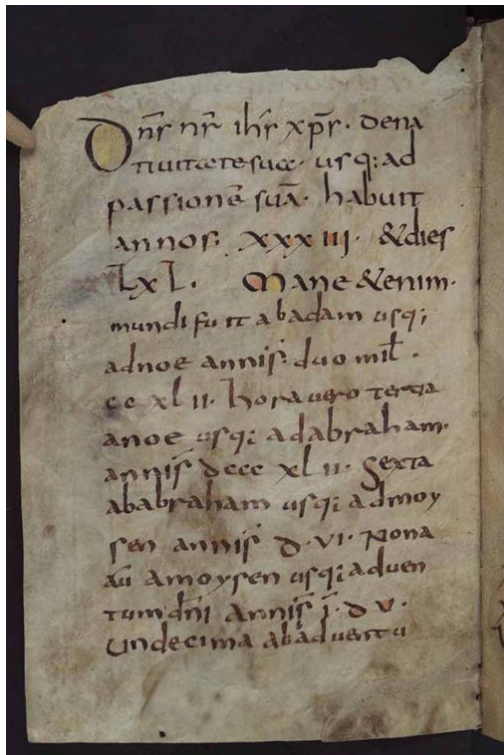 Dn̄s nr̄ ihs̄ xp̄s · dena
tiuitate sua · usq; ad
passionē suā · habuit
annos · xxxiii · & dies
LXL · Mane & enim ·
mundi fuit abadam usq;
adnoe annis · duo mil̄ ·
cc xl ii · hora uero tertia
anoe usq; adabraham ·
annis dccc xl ii · Sexta
ababraham usq; admoy
sen annis d · vi · Nona
aū amoysen usq; aduen
tum dn̄i annis ī · d v ·
Undecima abaduentu